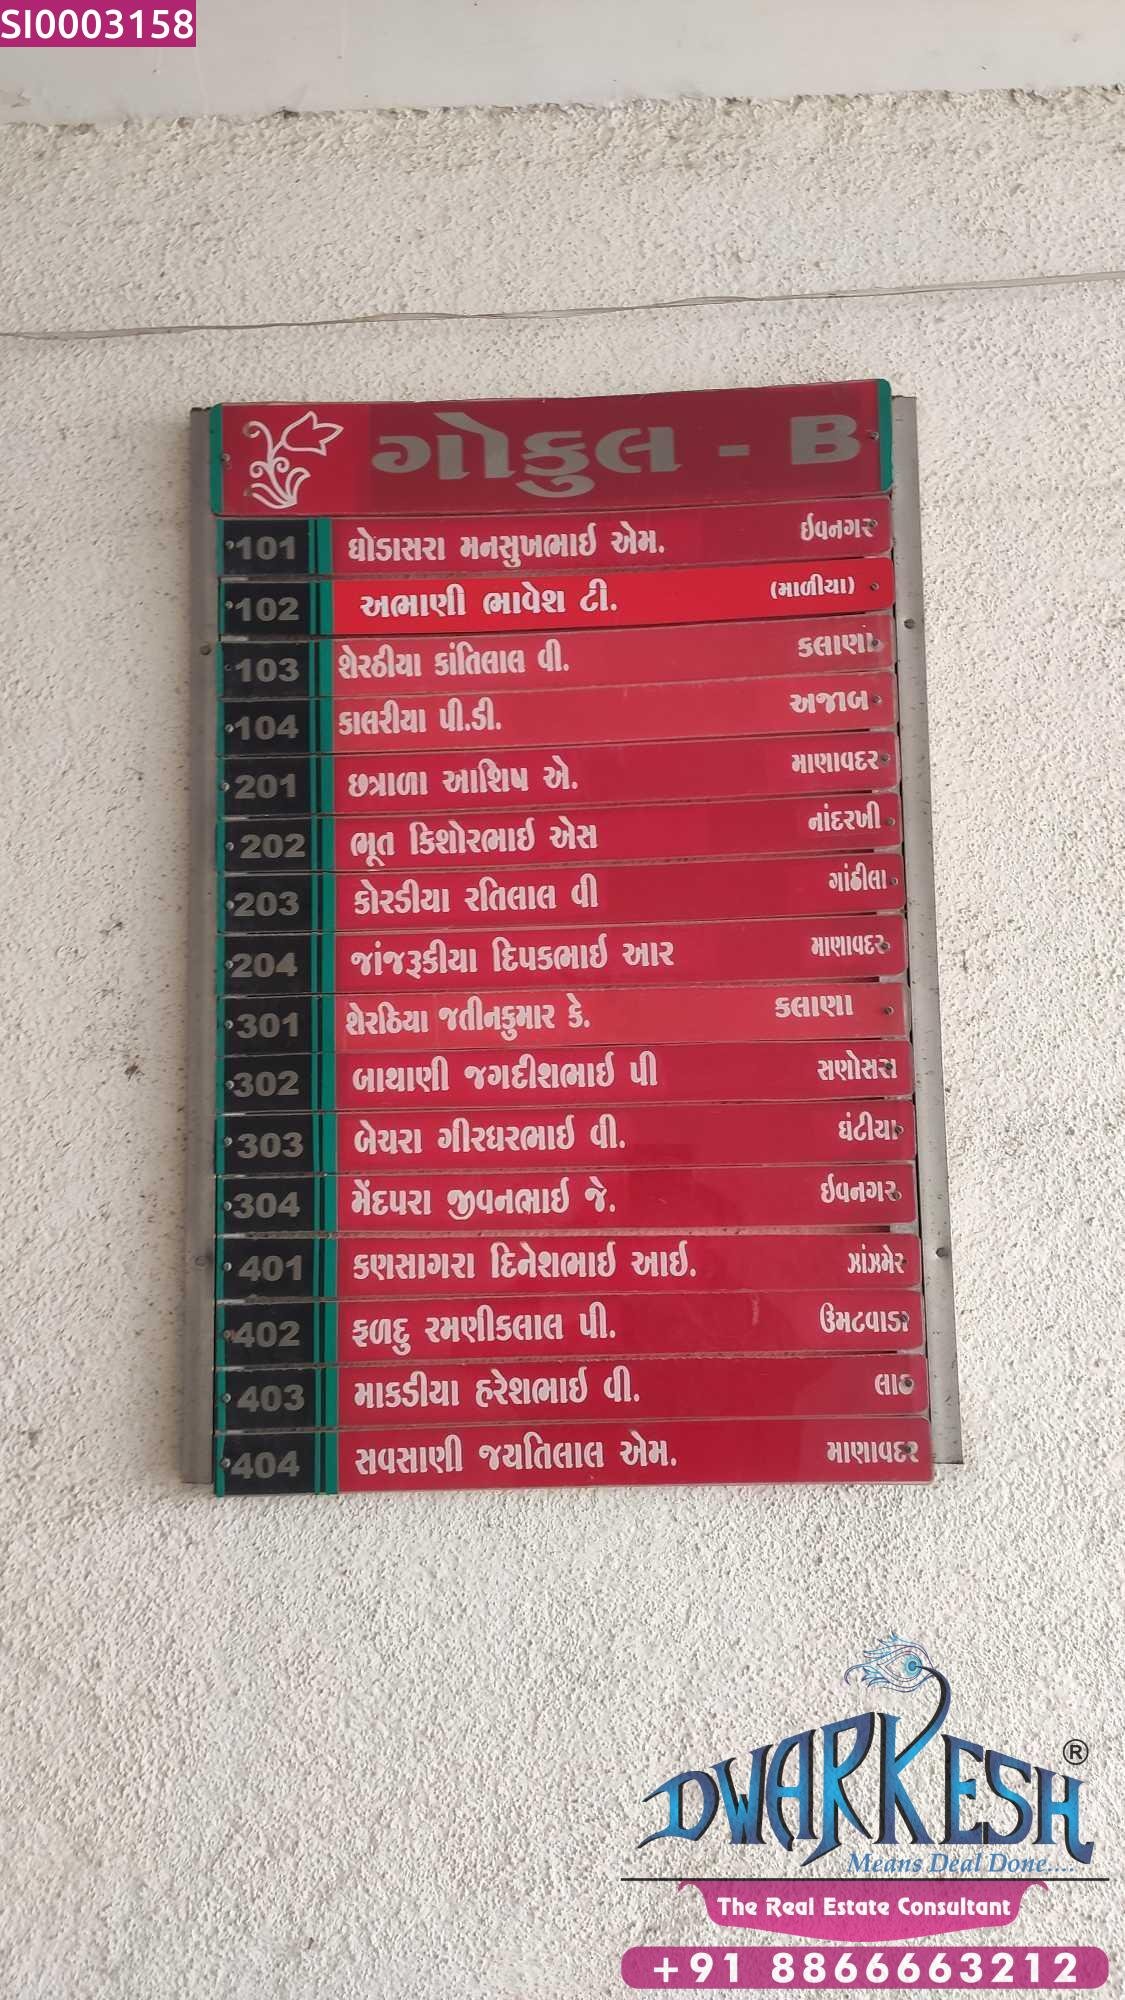 SI0003158
ગોકુલ - B
101 ઘોડાસરા મનસુખભાઈ એમ. ઈવનગર
102 અભાણી ભાવેશ ટી. (માળીયા)
103 શેરઠીયા કાંતિલાલ વી. કલાણા
104 કાલરીયા પી.ડી. અજાબ
201 છત્રાળા આશિષ એ. માણાવદર
202 ભૂત કિશોરભાઈ એસ નાંદરખી
203 કોરડીયા રતિલાલ વી ગાંઠીલા
204 જાંજરૂકીયા દિપકભાઈ આર માણાવદર
301 શેરઠિયા જતીનકુમાર કે. કલાણા
302 બાથાણી જગદીશભાઈ પી સણોસરા
303 બેચરા ગીરધરભાઈ વી. ઘંટીયા
304 મેંદપરા જીવનભાઈ જે. ઈવનગર
401 કણસાગરા દિનેશભાઈ આઈ. ઝાંઝમેર
402 ફળદુ રમણીકલાલ પી. ઉમટવાડા
403 માકડીયા હરેશભાઈ વી. લાઠ
404 સવસાણી જયતિલાલ એમ. માણાવદર
DWARKESH®
Means Deal Done....
The Real Estate Consultant
+91 8866663212